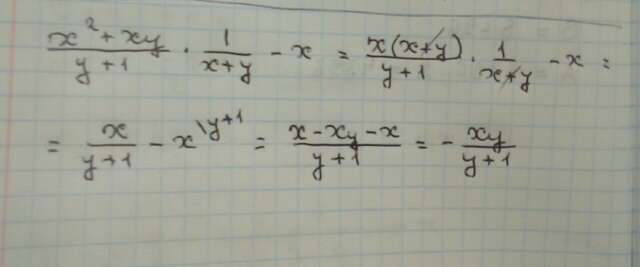 (x² + xy)/(y + 1) · 1/(x + y) − x = x(x + y)/(y + 1) · 1/(x + y) − x =
= x/(y + 1) − x\y+1 = (x − xy − x)/(y + 1) = − xy/(y + 1)